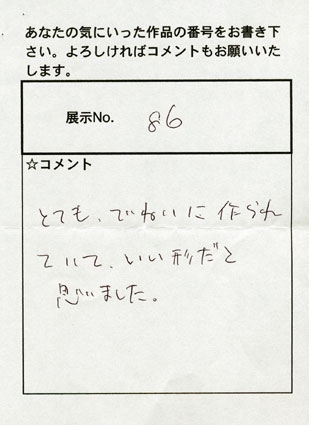 あなたの気にいった作品の番号をお書き下
さい。よろしければコメントもお願いいた
します。
展示No. 86
☆コメント
とても、ていねいに作られ
ていて、いい形だと
思いました。